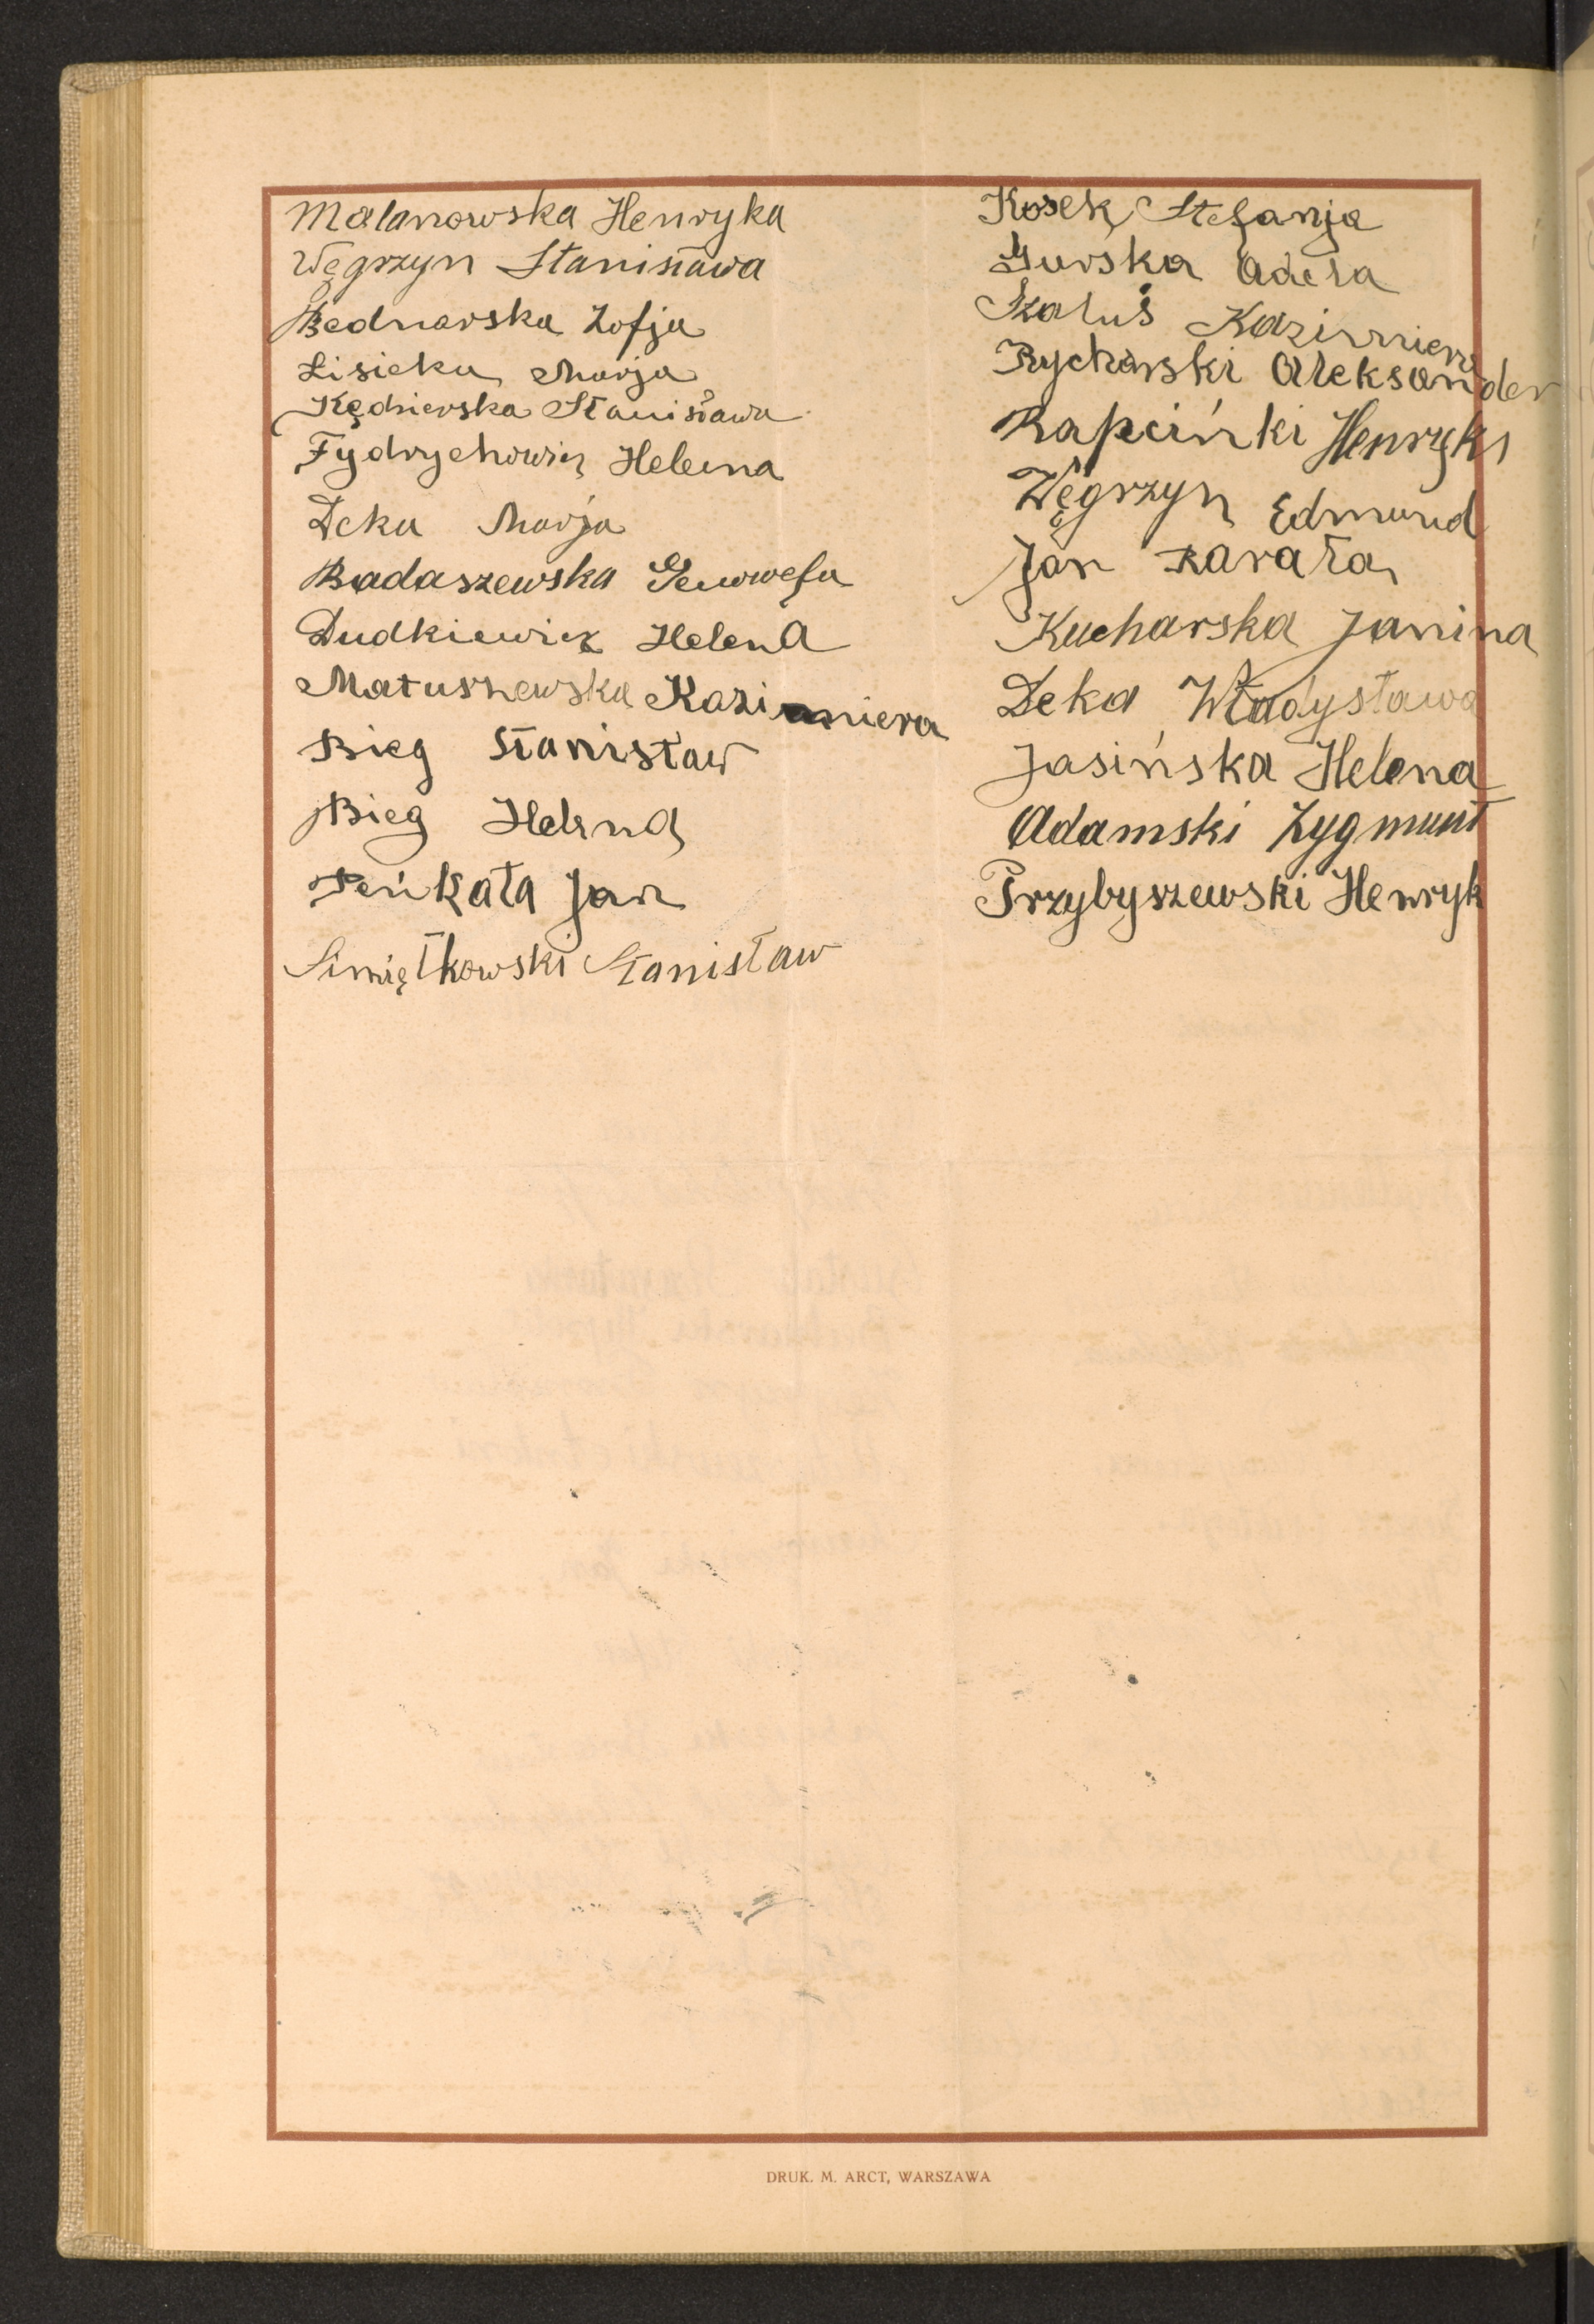 Malanowska Henryka
Węgrzyn Stanisława
Bednarska Zofja
Lisicka Marja
Kędzierska Stanisława
Fydrychowicz Helena
Deka Marja
Badaszewska Genowefa
Dudkiewicz Helena
Matuszewska Kazimiera
Bieg Stanisław
Bieg Helena
Peńkała Jan
Smiętkowski Stanisław
Kosek Stefanja
Gurska Adela
Szaluś Kazimiera
Rycharski Aleksander
Rapciński Henryk
Węgrzyn Edmund
Jan
Kucharska Janina
Deka Władysława
Jasińska Helena
Adamski Zygmunt
Przybyszewski Henryk
DRUK. M. ARCT, WARSZAWA